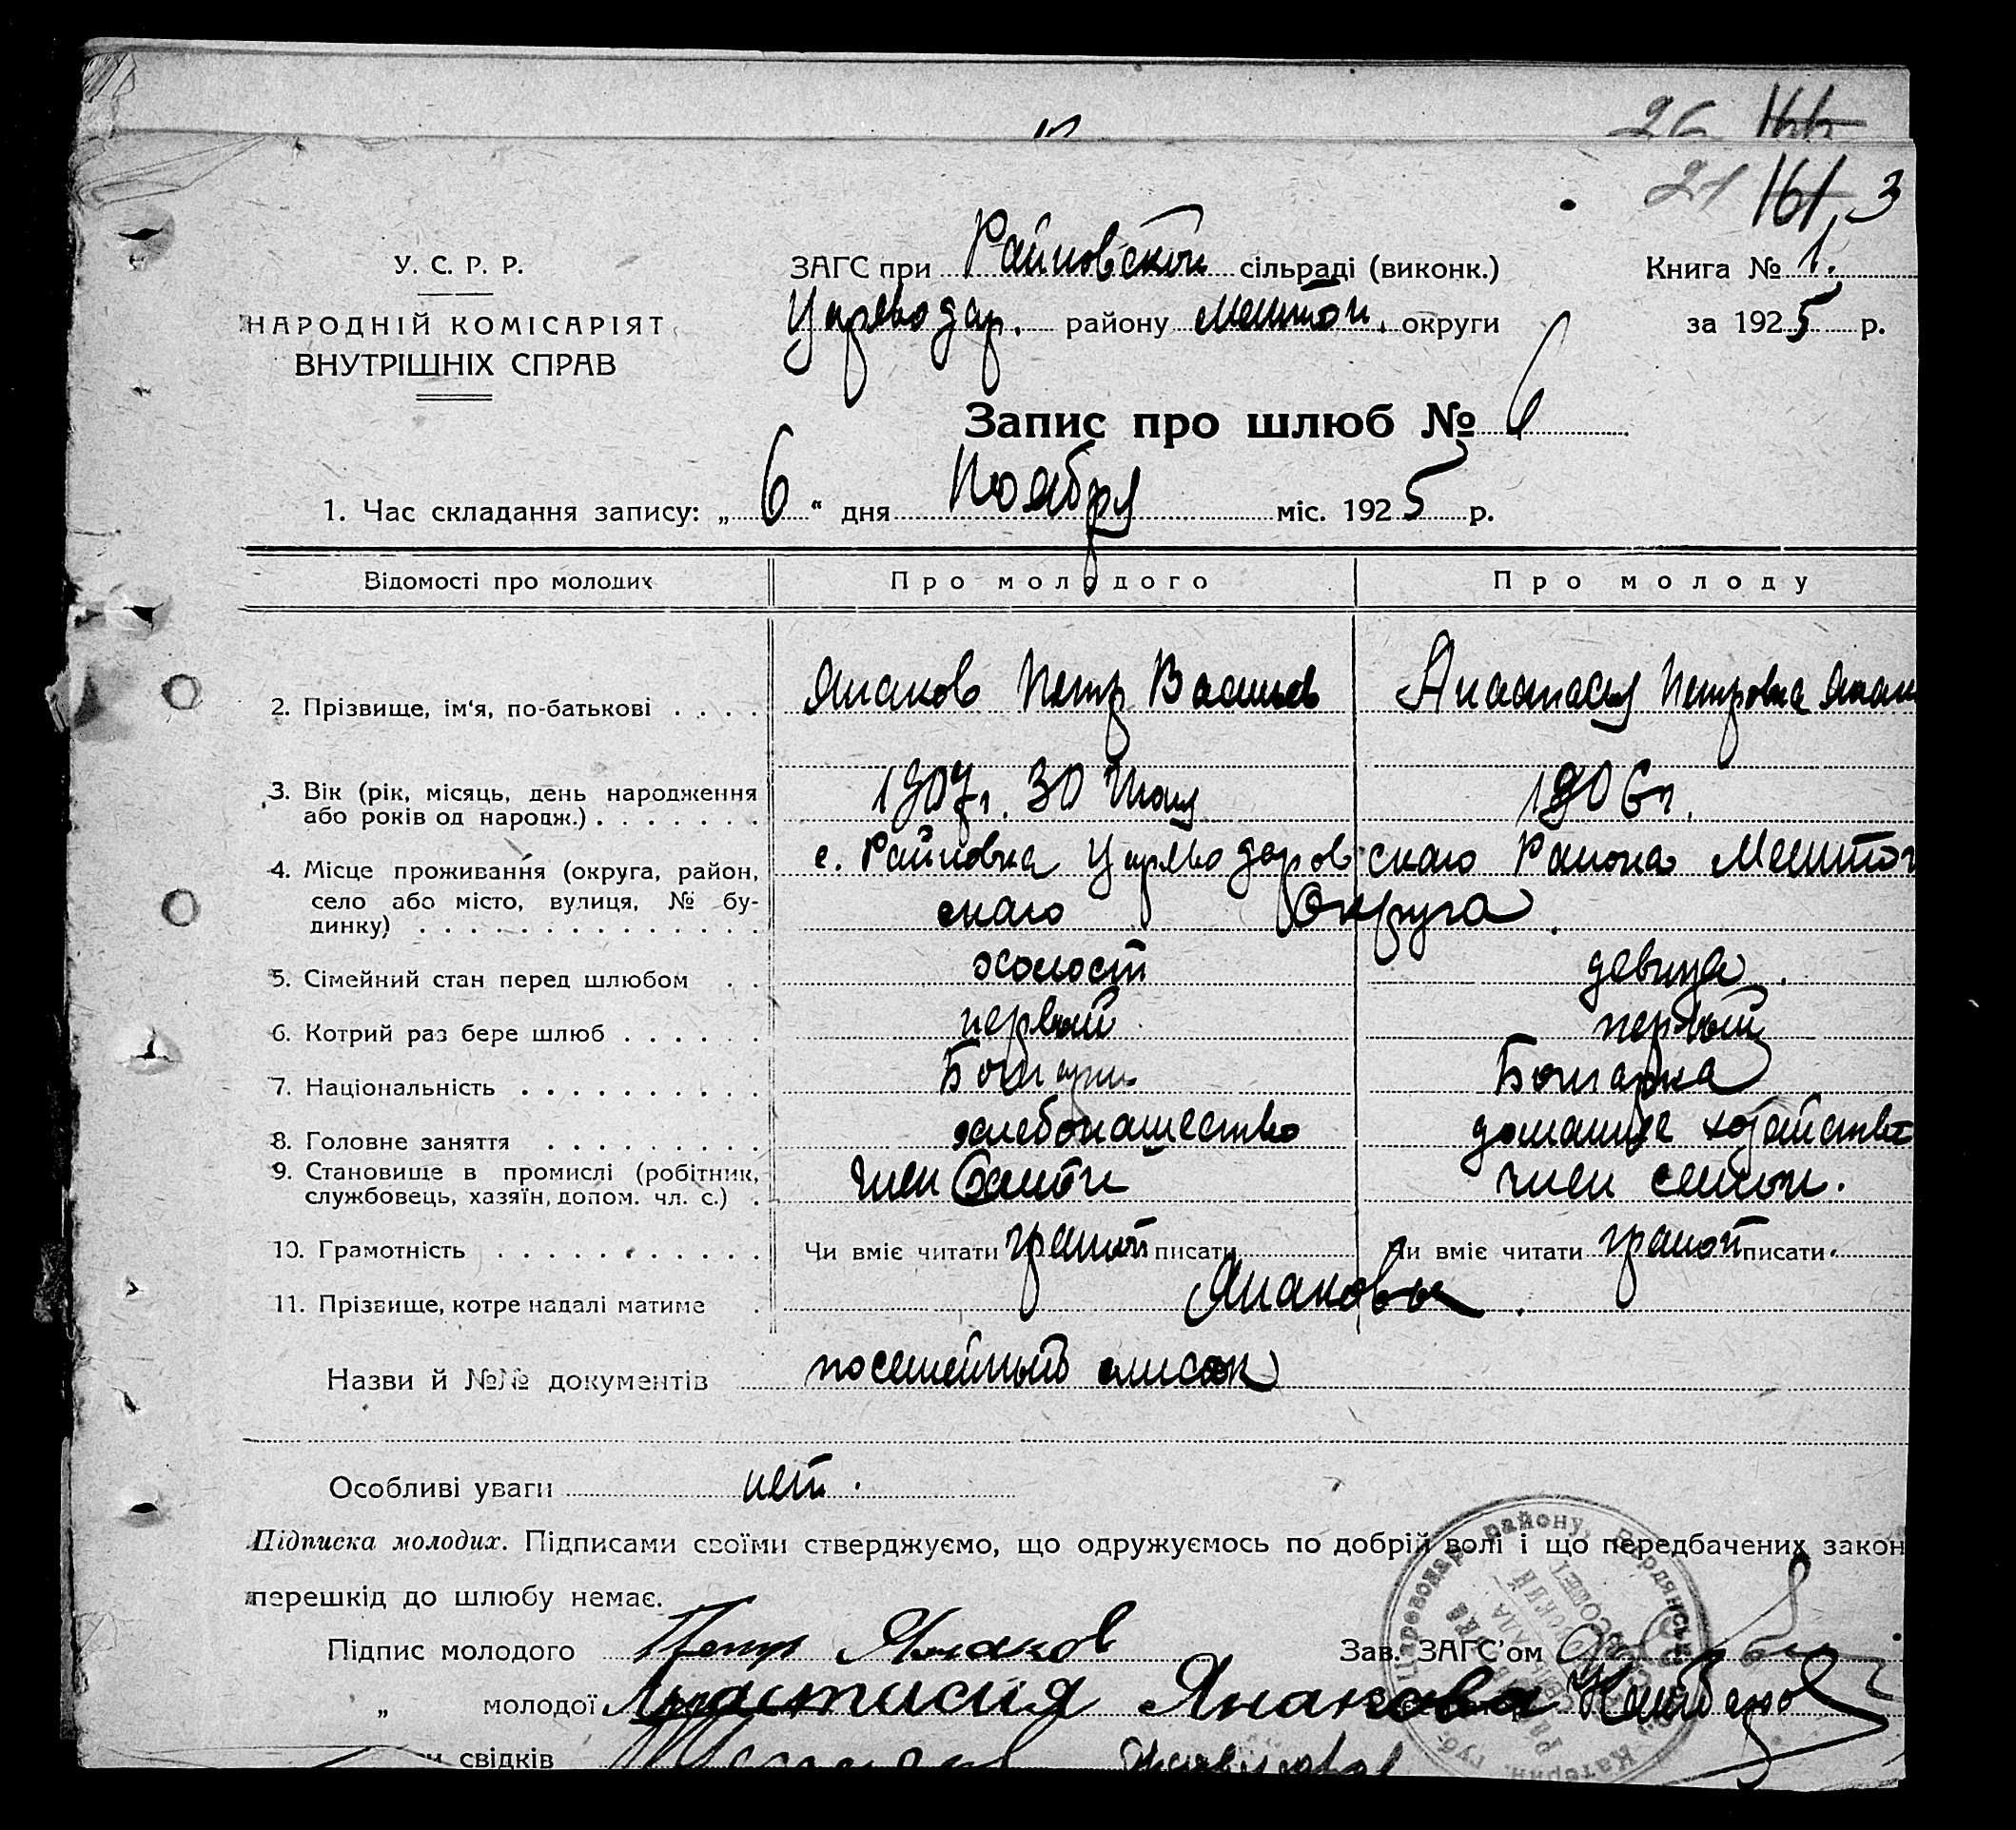 26 166
21 161 3
У. С. Р. Р.
НАРОДНІЙ КОМІСАРІЯТ
ВНУТРІШНІХ СПРАВ
ЗАГС при Райновской сільраді (виконк.)
Цареводар. району Мелитоп. округи
Книга № 1.
за 1925 р.
Запис про шлюб № 6
1. Час складання запису: „ 6 “ дня Ноября міс. 1925 р.
Відомості про молодих Про молодого Про молоду
2. Прізвище, ім‘я, по-батькові . . . . Янаков Петр Васильев Анастасия Петровна Янак
3. Вік (рік, місяць, день народження
або років од народж.) . . . . . . . 1907 г. 30 1906 г.
4. Місце проживання (округа, район,
село або місто, вулиця, № бу-
динку) . . . . . . . . . . . . . . .
с. Райновка Цареводаровскаго Района Мелитоп
скаго Округа
5. Сімейний стан перед шлюбом . . холост девица.
6. Котрий раз бере шлюб . . . . . . первый первый
7. Національність . . . . . . . . . . Болгарин Болгарка
8. Головне заняття . . . . . . . . . хлебопашество домашнее хозяйство
9. Становище в промислі (робітник,
службовець, хазяїн, допом. чл. с.) . член семьи.
10. Грамотність . . . . . . . . . . . Чи вміє читати грамот писати Чи вміє читати грамот писати.
11. Прізвище, котре надалі матиме . Янаковы.
Назви й №№ документів посемейный список
Особливі уваги нет.
Підписка молодих. Підписами своїми стверджуємо, що одружуємось по добрій волі і що передбачених закон
перешкід до шлюбу немає.
Підпис молодого Петр Янаков Зав. ЗАГС'ом
„ молодої Анастасия Янакова
свідків
Царевонар району, Бердянськ Катерин. губ.